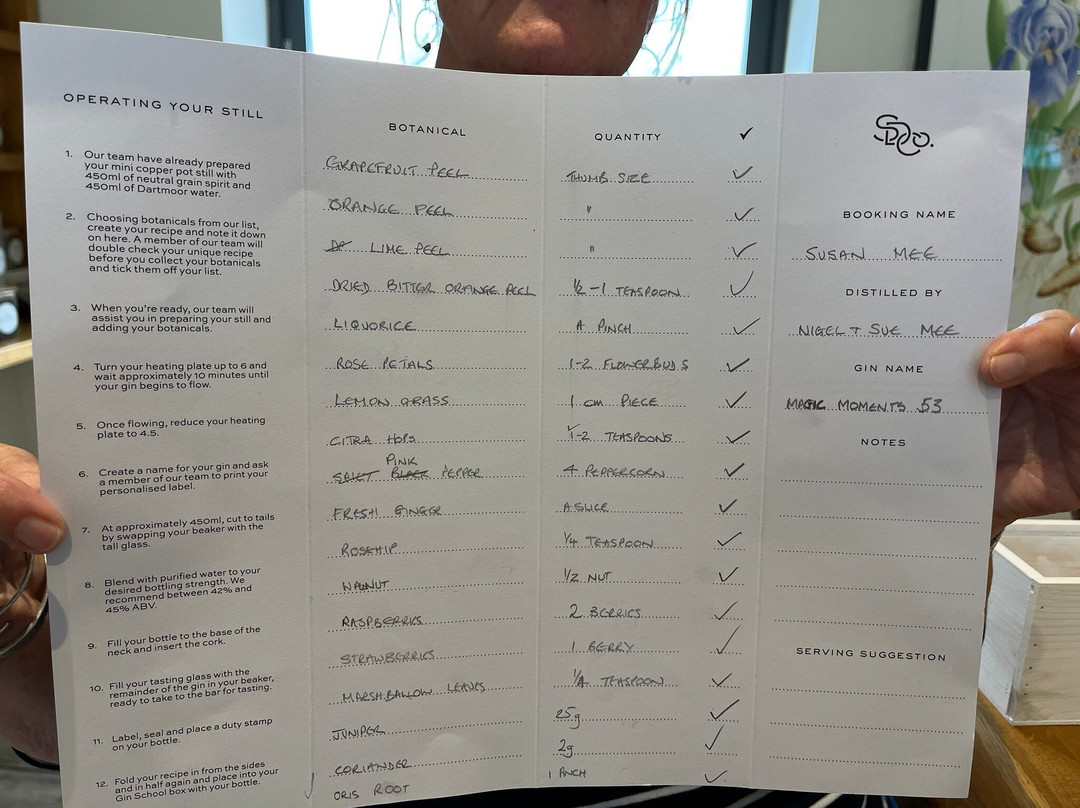 OPERATING YOUR STILL
1. Our team have already prepared
your mini copper pot still with
450ml of neutral grain spirit and
450ml of Dartmoor water.
2. Choosing botanicals from our list,
create your recipe and note it down
on here. A member of our team will
double check your unique recipe
before you collect your botanicals
and tick them off your list.
3. When you're ready, our team will
assist you in preparing your still and
adding your botanicals.
4. Turn your heating plate up to 6 and
wait approximately 10 minutes until
your gin begins to flow.
5. Once flowing, reduce your heating
plate to 4.5.
6. Create a name for your gin and ask
a member of our team to print your
personalised label.
7. At approximately 450ml, cut to tails
by swapping your beaker with the
tall glass.
8. Blend with purified water to your
desired bottling strength. We
recommend between 42% and
45% ABV.
9. Fill your bottle to the base of the
neck and insert the cork.
10. Fill your tasting glass with the
remainder of the gin in your beaker,
ready to take to the bar for tasting.
11. Label, seal and place a duty stamp
on your bottle.
12. Fold your recipe in from the sides
and in half again and place into your
Gin School box with your bottle.
BOTANICAL QUANTITY ✓
GRAPEFRUIT PEEL THUMB SIZE ✓
ORANGE PEEL " ✓
LIME PEEL " ✓
DRIED BITTER ORANGE PEEL 1/2-1 TEASPOON ✓
LIQUORICE A PINCH ✓
ROSE PETALS 1-2 FLOWERBUDS ✓
LEMON GRASS 1 cm PIECE ✓
CITRA HOPS 1-2 TEASPOONS ✓
PINK
BLACK PEPPER 4 PEPPERCORN ✓
FRESH GINGER A SLICE ✓
ROSEHIP 1/4 TEASPOON ✓
WALNUT 1/2 NUT ✓
RASPBERRIES 2 BERRIES ✓
STRAWBERRIES 1 BERRY ✓
MARSHMALLOW LEAVES 1/4 TEASPOON ✓
JUNIPER 25g ✓
CORIANDER 2g ✓
ORIS ROOT 1 PINCH ✓
SDCo.
BOOKING NAME
SUSAN MEE
DISTILLED BY
NIGEL + SUE MEE
GIN NAME
MAGIC MOMENTS 53
NOTES
SERVING SUGGESTION